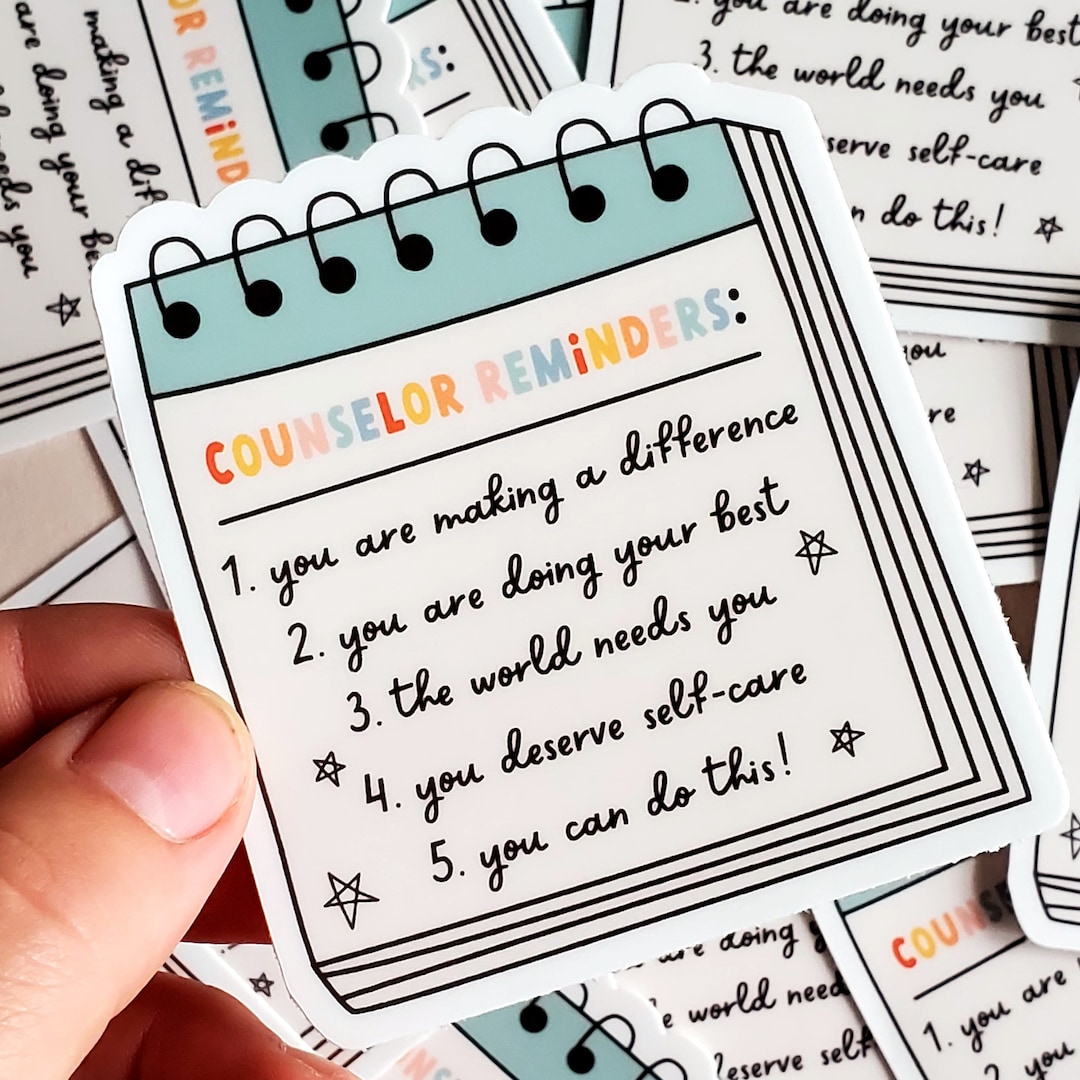 COUNSELOR REMiNDERS:
1. you are making a difference
2. you are doing your best
3. the world needs you
4. you deserve self-care
5. you can do this!
OR REMiND
making a dif
are doing your be
needs you
S:
you are doing your best
3. the world needs you
serve self-care
n do this!
you
re
are doing
e world need
deserve self
COUNSE
1. you are
2. you
COUNS